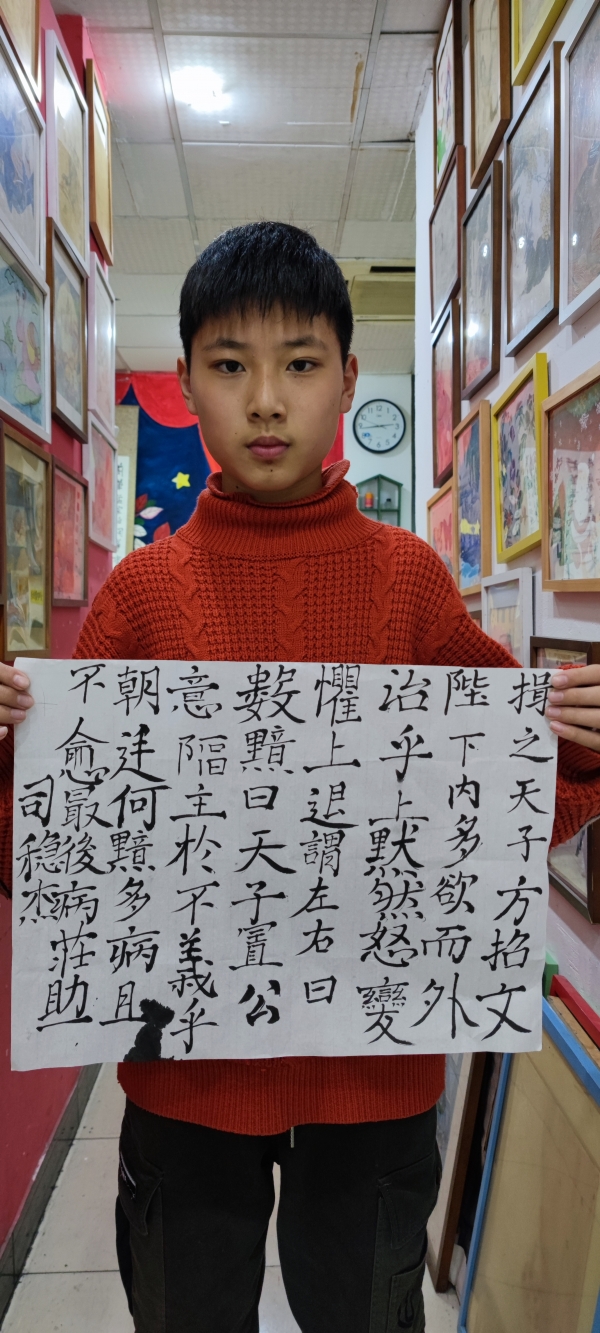 揖之天子方招文
陛下内多欲而外
治乎上默然怒變
懼上退謂左右曰
數黯曰天子置公
意陷主於不義乎
朝廷何黯多病且
不愈最後病莊助
司稳杰